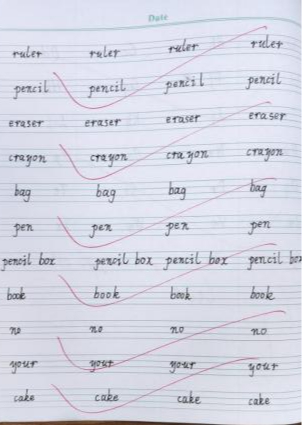 Date
ruler ruler ruler ruler
pencil pencil pencil pencil
eraser eraser eraser eraser
crayon crayon crayon crayon
bag bag bag bag
pen pen pen pen
pencil box pencil box pencil box pencil box
book book book book
no no no no
your your your your
cake cake cake cake